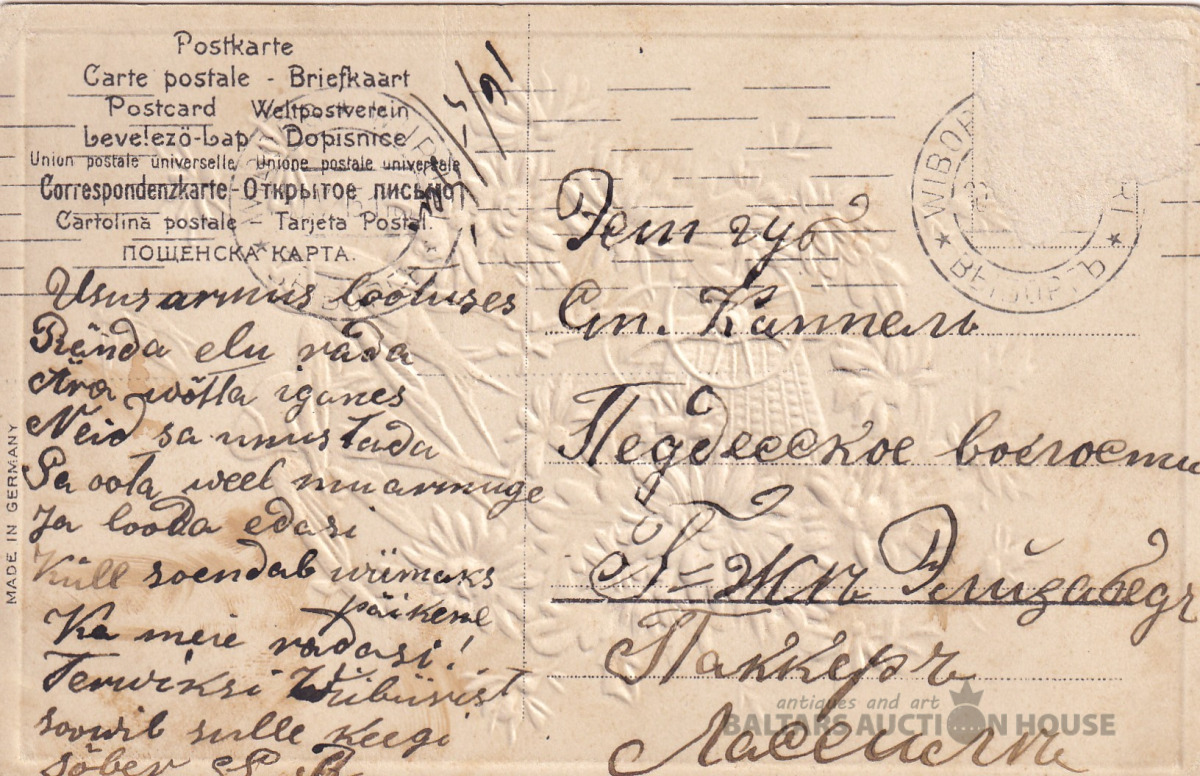 Postkarte
Carte postale - Briefkaart
Postcard Weltpostverein
Levelező-Lap - Dopisnice
Union postale universelle Unione postale universale
Correspondenzkarte - Открытое письмо
Cartolina postale - Tarjeta Postal.
ПОЩЕНСКА КАРТА.
MADE IN GERMANY
Usus armus lootuses
Rända elu rada
Ära wõtta iganes
Neid sa unustada
Sa oota weel mu armuge
Ja looda edasi
Küll soendab wiimaks
päikene
Ka meie radasi!
Terwiksi Wiibürist
soowib sulle keegi
sõber
16/
WIBOR
ВЫБОРГЪ
Эст губ
Ст. Каппель
Педдесское волости
Элизабедъ
Паккеръ
antiques and art
BALTARS AUCTION HOUSE